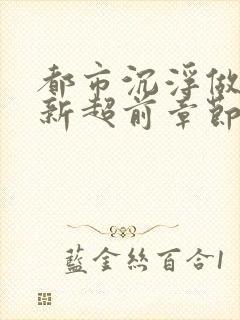 都市沉浮做
新超前章節
藍金絲百合1